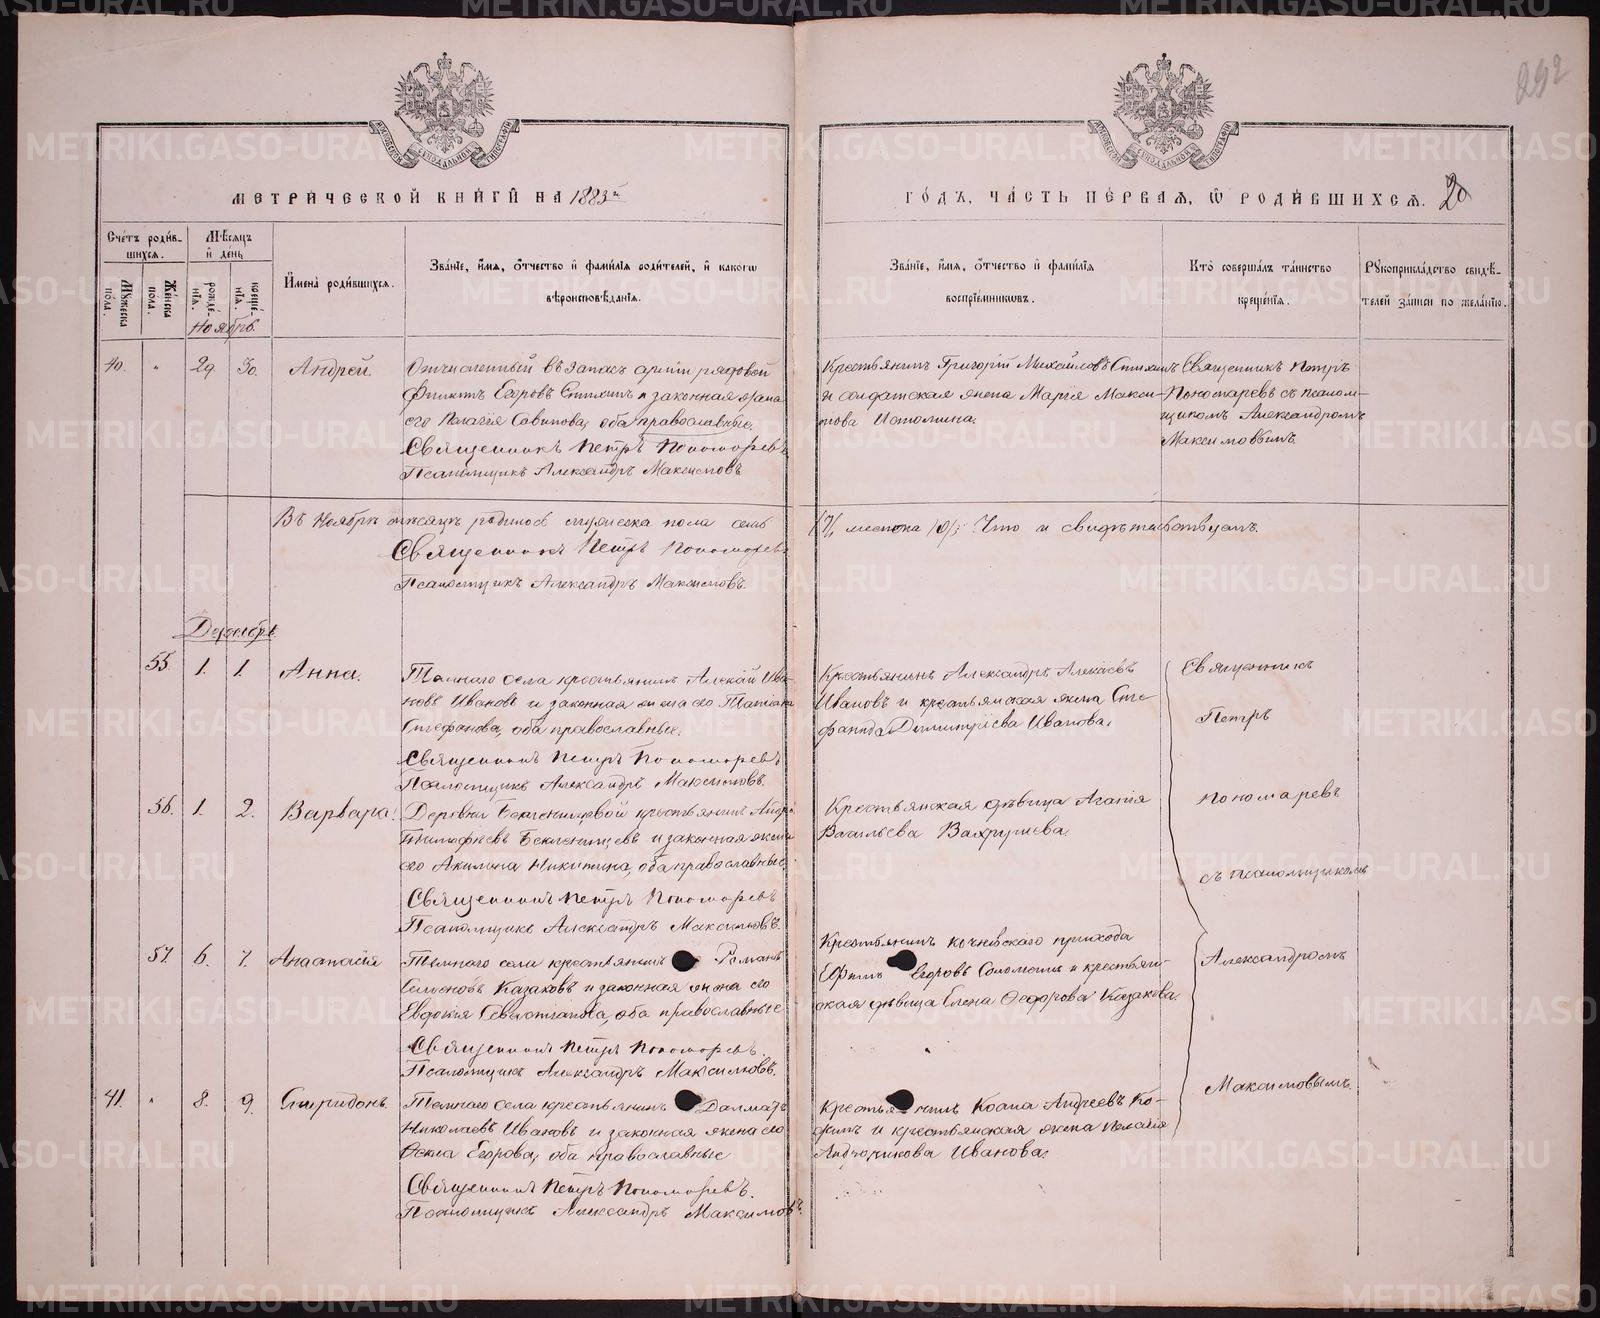 292
МЕТРИЧЕСКОЙ КНИГИ НА 1883й
ГОДЪ, ЧАСТЬ ПЕРВАЯ, Ѿ РОДИВШИХСЯ. 20
Счетъ родившихся.
Мужеска пола.
Женска пола.
Мѣсяцъ и день
рожденія.
крещенія.
Имена родившихся.
Званіе, имя, отчество и фамилія родителей, и какого
вѣроисповѣданія.
Званіе, имя, отчество и фамилія
воспріемниковъ.
Кто совершалъ таинство
крещенія.
Рукоприкладство свидѣ-
телей записи по желанію.
Ноябрь.
40. " 29 30. Андрей.
Отчисленный въ запасъ арміи рядовой
Филиппъ Егоровъ и законная жена
его Пелагія Савинова, оба православные.
Священникъ Петръ Пономаревъ
Псаломщикъ Александръ Максимовъ
Крестьянинъ Григорій Михайловъ
и солдатская жена Марія Макси-
мова Истомина.
Священникъ Петръ
Пономаревъ съ псалом-
щикомъ Александромъ
Максимовымъ.
Въ Ноябрѣ мѣсяцѣ родилось мужеска пола семь
/7/, женска /8/; Что и свидѣтельствуемъ.
Священникъ Петръ Пономаревъ
Псаломщикъ Александръ Максимовъ.
Декабрь
55. 1. 1. Анна.
Темнаго села крестьянинъ Алексѣй Ива-
новъ Ивановъ и законная жена его Татіана
Стефанова, оба православные.
Священникъ Петръ Пономаревъ
Псаломщикъ Александръ Максимовъ.
Крестьянинъ Александръ Алексѣевъ
Ивановъ и крестьянская жена Сте-
фанида Димитріева Иванова.
56. 1. 2. Варвара.
Деревни Бекленищевой крестьянинъ Андрей
Тимофѣевъ Бекленищевъ и законная жена
его Акилина Никитина, оба православные.
Священникъ Петръ Пономаревъ
Псаломщикъ Александръ Максимовъ.
Крестьянская дѣвица Агапія
Васильева Вахрушева.
57. 6. 7. Анастасія
Темнаго села крестьянинъ Романъ
Симеоновъ Казаковъ и законная жена его
Евдокія Севастіанова, оба православные
Священникъ Петръ Пономаревъ.
Псаломщикъ Александръ Максимовъ.
Крестьянинъ Кочневскаго прихода
Ефимъ Егоровъ Соломеинъ и крестьян-
ская дѣвица Елена Ѳеодорова Казакова.
41. " 8. 9. Спиридонъ.
Темнаго села крестьянинъ Далматъ
Николаевъ Ивановъ и законная жена его
Егорова, оба православные
Священникъ Петръ Пономаревъ.
Псаломщикъ Александръ Максимовъ.
Крестьянинъ Андреевъ Ко-
и крестьянская жена Пелагія
Андроникова Иванова.
Священникъ
Петръ
Пономаревъ
съ псаломщикомъ
Александромъ
Максимовымъ.
METRIKI.GASO-URAL.RU